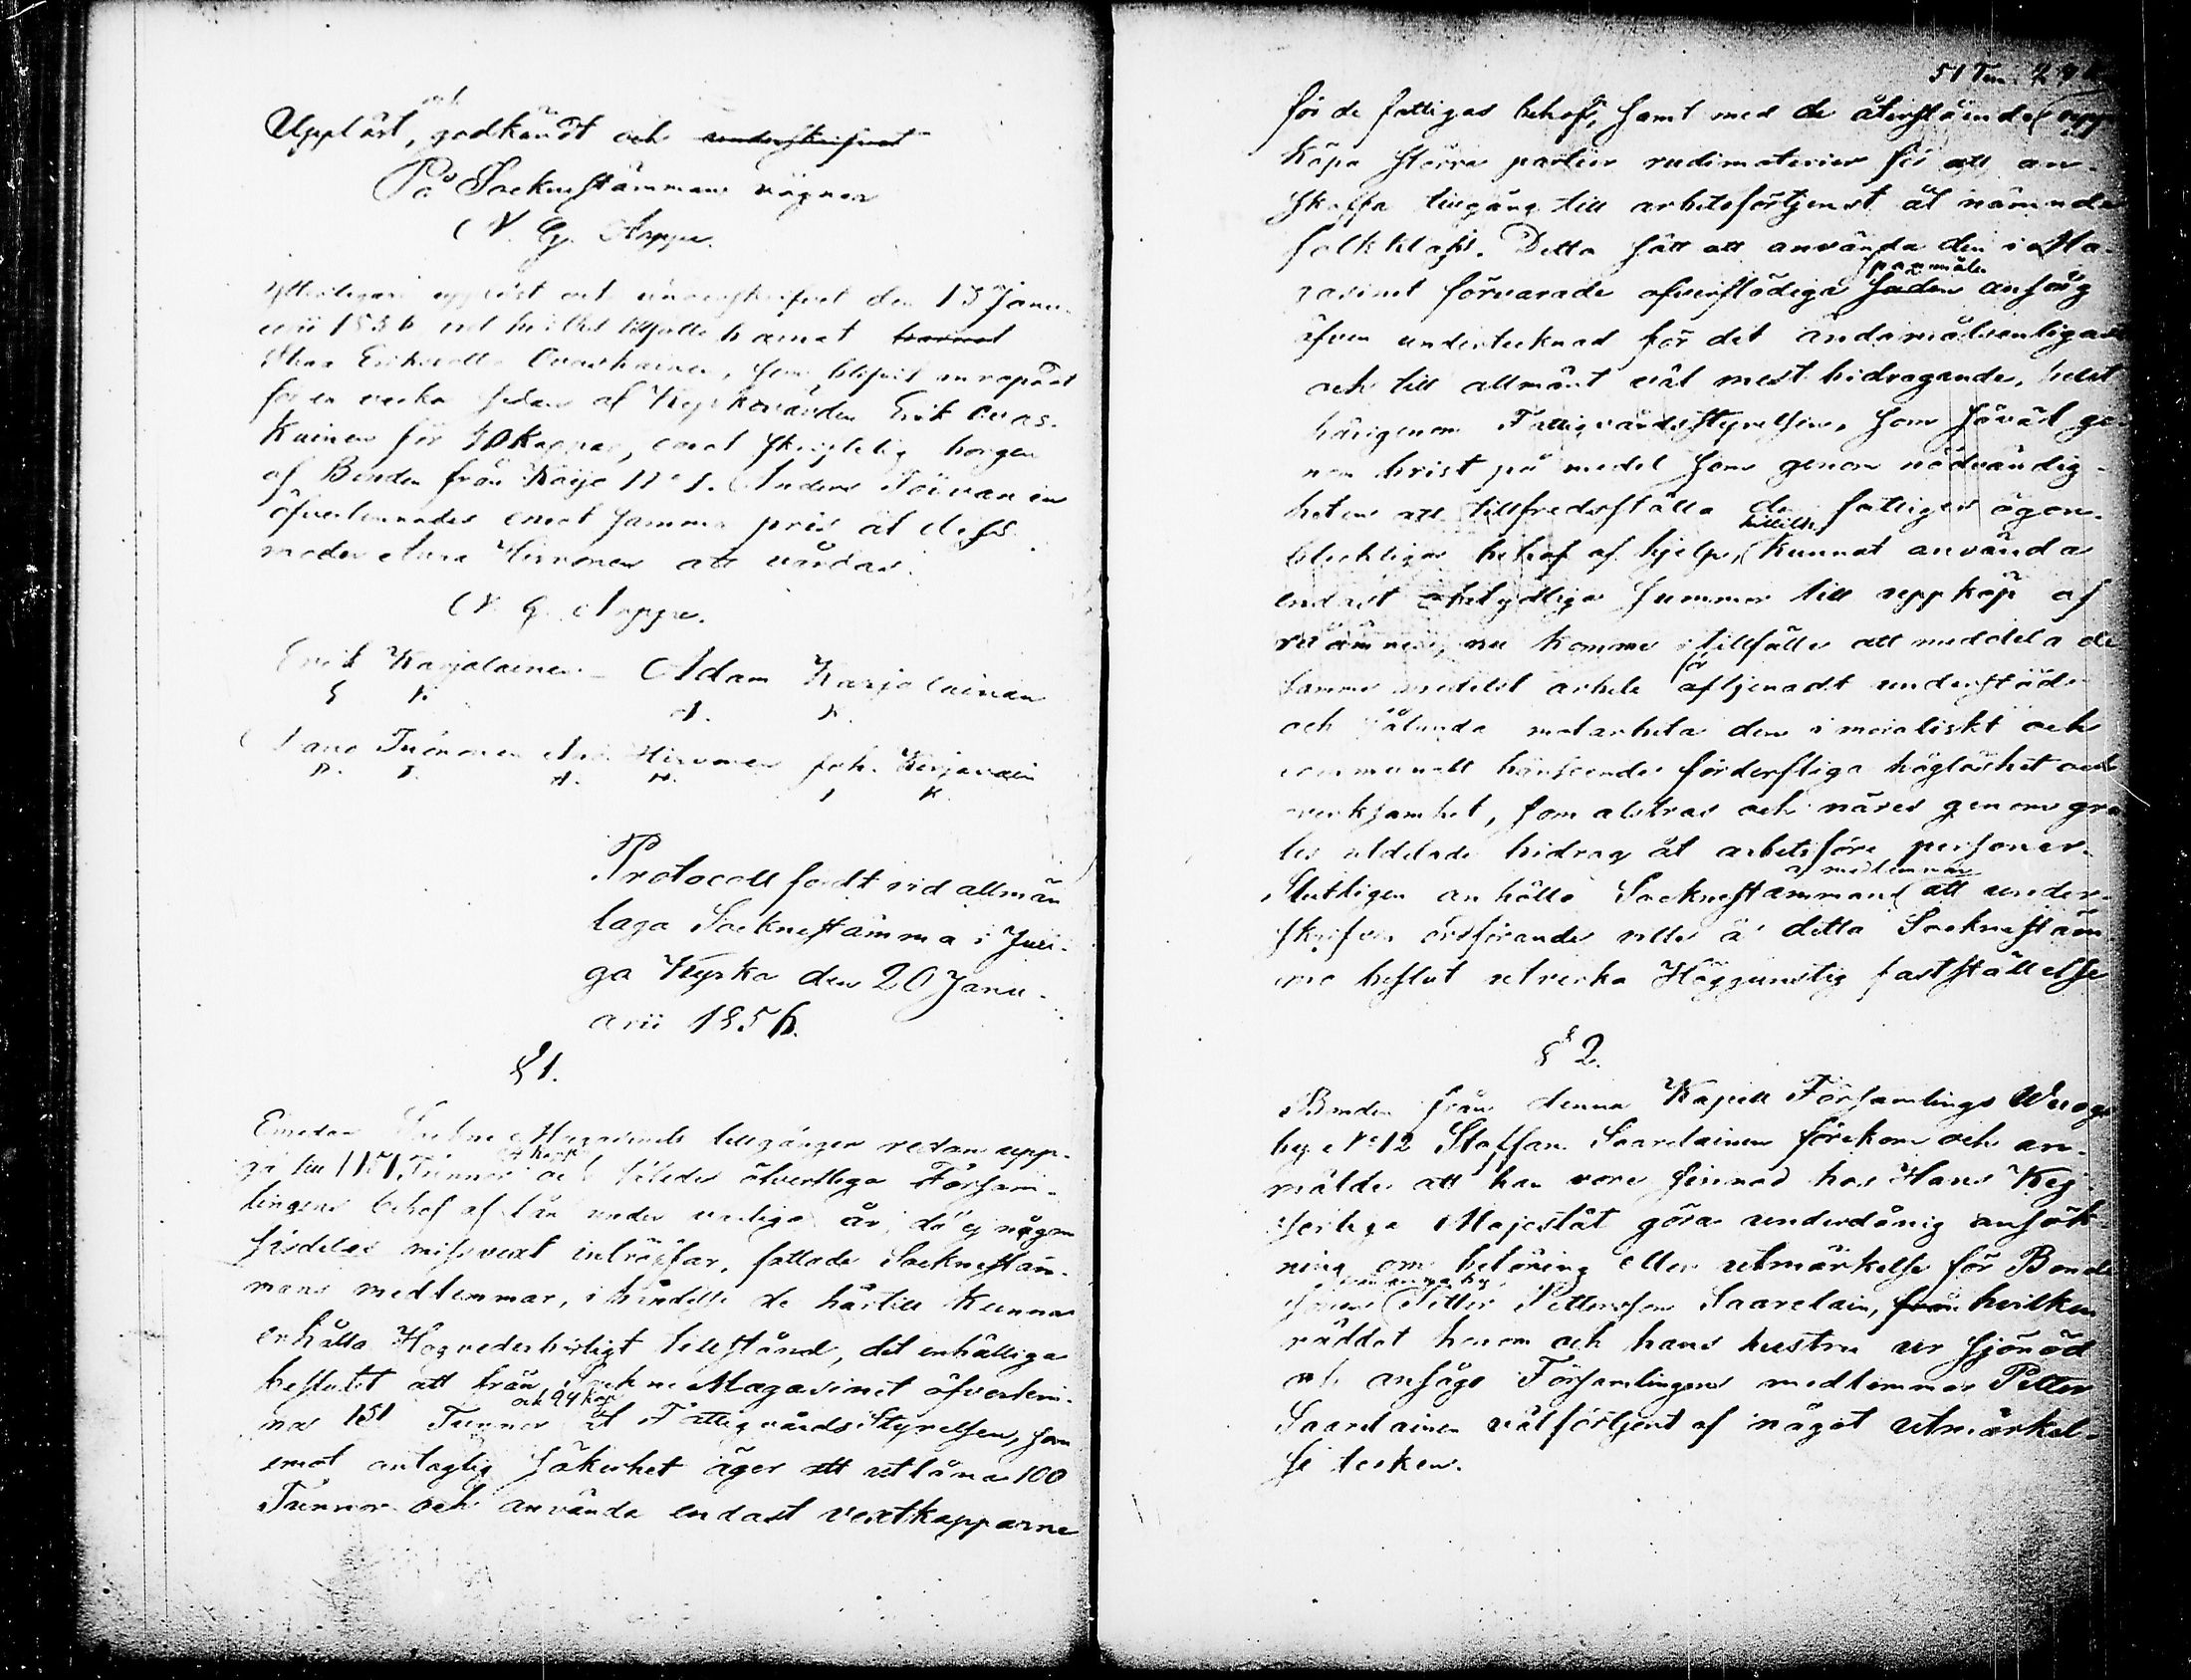 Uppläst, godkändt och underskrifvet
På Socknestämmans vägnar
N. G. Arppe.
Ytterligare uppläst och underskrifvet den 13 Janu-
arii 1856 vid hvilket tillfälle barnet barnet
Ovaskainen, som blifvit anropadt
för en vecka sedan af Kyrkovärden Erik Ovas-
kainen för 30 Kappar, emot skriftelig borgen
af Bonden från Koijo No 1. Anders Toivanen
öfverlemnades emot samma pris åt dess
moder Anna Hirvonen att vårdas.
N. G. Arppe.
Erik Karjalainen - Adam Karjalainen
E K. A. K.
Tuononen Hirvonen Joh. Kirjavain
P. T. A. H. I K.
Protocoll fördt vid allmän
laga Socknestämma i Juu-
ga Kyrka den 20 Janu-
arii 1856.
§ 1.
Emedan Sockne Magasinets tillgångar redan upp-
gå till 1151 Tunnor och således öfverstiga Försam-
lingens behof af lån under vanliga år, då ej någon
särdeles missvext inträffar, fattade Socknestäm-
mans medlemmar, i händelse de härtill kunna
erhålla Högvederbörligt tillstånd, det enhälliga
beslutet att från Sockne Magasinet öfverlem-
och 24 kap
na 151 Tunnor åt Fattigvårds Styrelsen, som
emot antaglig säkerhet äger att utlåna 100
Tunnor och använda endast vextkapparne
51 Tun. 24
för de fattigas behof, samt med de återstående upp-
köpa större partier rudimaterier för att an-
skaffa tillgång till arbetsförtjenst åt nämnde
folkklass. Detta sätt att använda den i Ma-
spannmålen
gasinet förvarade öfverflödiga säden ansåg
äfven undertecknad för det ändamålsenligaste
och till allmänt väl mest bidragande, helst
härigenom Fattigvårdsstyrelsen, som såväl ge-
nom brist på medel som genom nödvändig-
heten att tillfredsställa de fattigas ögon-
hittills
blickliga behof af hjelp, kunnat använda
endast obetydliga summor till uppköp af
råämnen, nu kommer i tillfälle att meddela de
för
samma medelst arbete aftjenadt understöd
och sålunda motarbeta den i moraliskt och
communalt hänseende förderfliga håglöshet och
overksamhet, som alstras och näres genom gra-
tis utdelade bidrag åt arbetsföre personer.
medlemmar
Slutligen anhöllo Socknestämmans att under-
skrifven ordförande ville å detta Socknestäm-
mo beslut utverka Höggunstig fastställelse
§ 2.
Bonden från denna Kapell Församlings
by No 12 Staffan Saarelainen förekom och an-
mälde att han vore sinnad hos Hans Kej-
serliga Majestät göra underdånig ansök-
ning om belöning eller utmärkelse för Bonde
sonen Petter Pettersson Saarelain, från hvilken
räddat honom och hans hustru ur sjönöd
och ansågo Församlingens medlemmar Petter
Saarelainen välförtjent af något utmärkel-
se tecken.